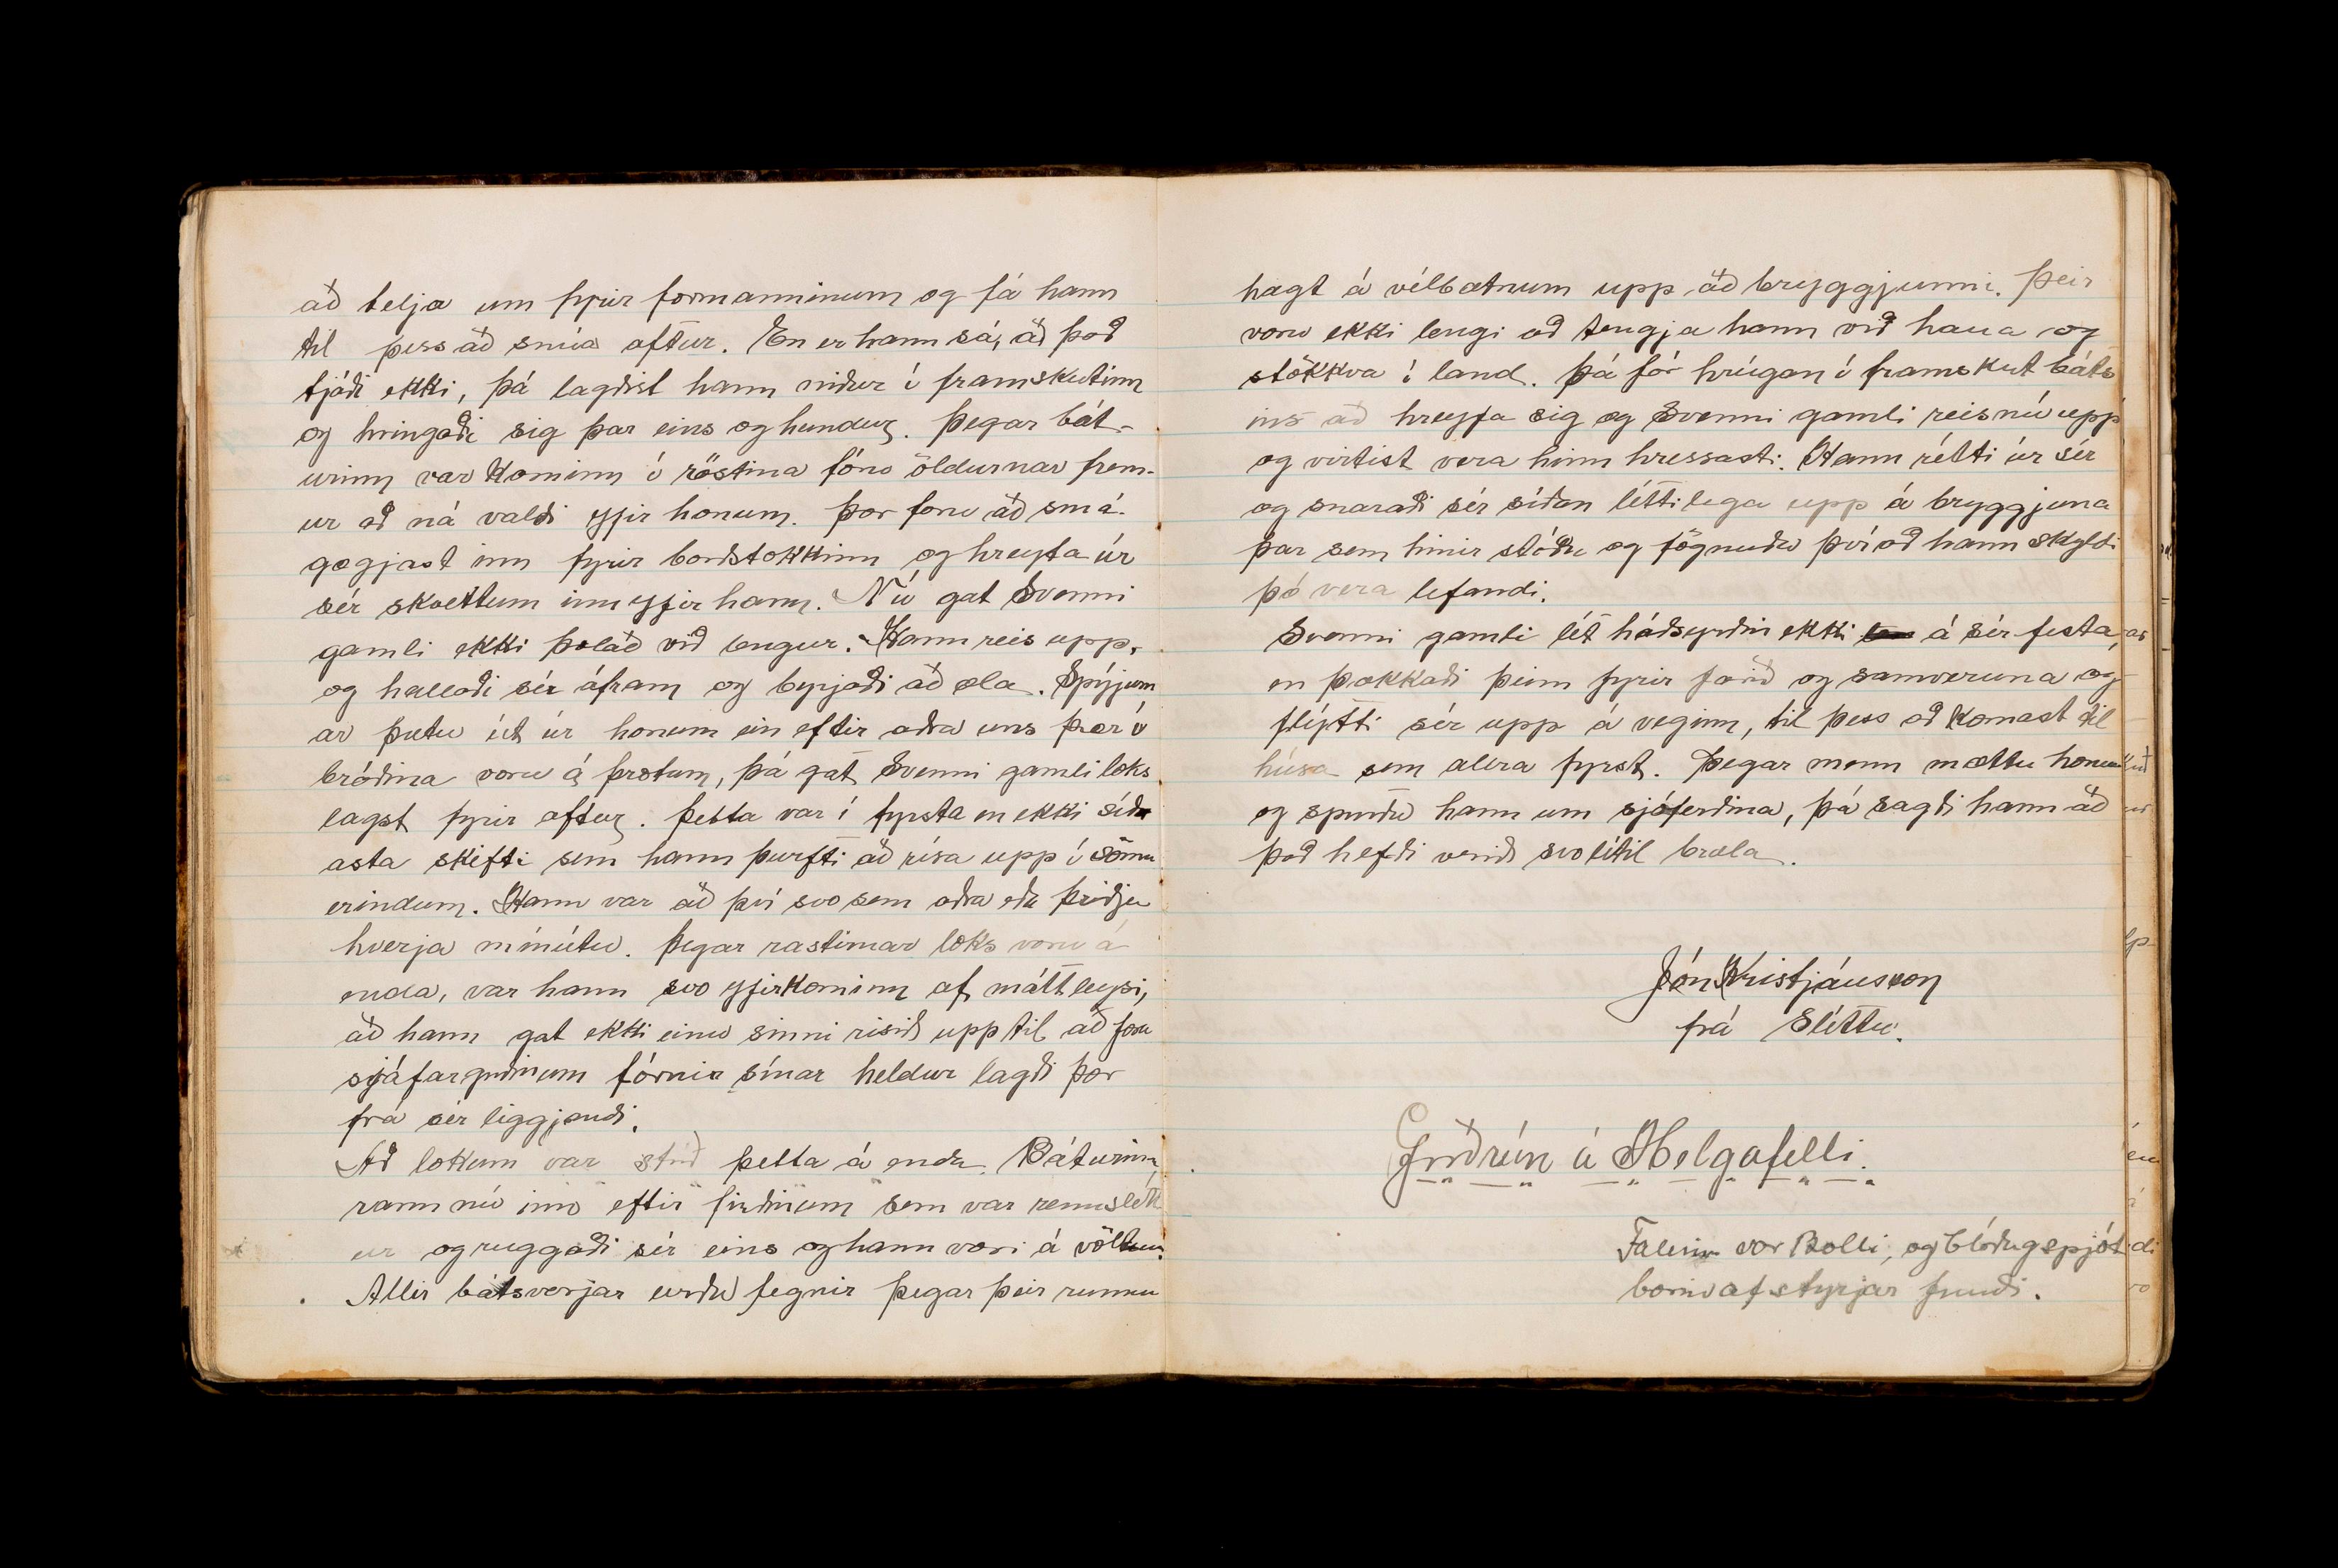 að telja um fyrir formanninum og fá hann
til þess að snúa aftur. En er hann sá, að það
tjáði ekki, þá lagðist hann niður í framskutinn
og hringaði sig þar eins og hundur. Þegar bát-
urinn var kominn í röstina fóru öldurnar frem-
ur að ná valdi yfir honum. Þær fóru að smá-
gægjast inn fyrir borðstokkinn og hreyta úr
sér skvettum inn yfir hann. Nú gat Svenni
gamli ekki þolað við lengur. Hann reis upp,
og hallaði sér áfram og byrjaði að æla. Spýjurn
ar þutu út úr honum ein eftir aðra uns þær í
bráðina voru á þrotum, þá gat Svenni gamli loks
lagst fyrir aftur. Þetta var í fyrsta en ekki síð
asta skifti sem hann þurfti að rísa upp í sömu
erindum. Hann var að því svo sem aðra eða þriðju
hverja mínútu. Þegar rastirnar loks voru á
enda, var hann svo yfirkominn af máttleysi,
að hann gat ekki einu sinni risið upp til að færa
sjáfarguðinum fórnir sínar heldur lagði þær
frá sér liggjandi.
Að lokum var stríð þetta á enda. Báturinn
rann nú inn eftir firðinum sem var rennslétt
ur og ruggaði sér eins og hann væri á völtum.
Allir bátsverjar urðu fegnir þegar þeir runnu
hægt á vélbátnum upp að bryggjunni. Þeir
voru ekki lengi að tengja hann við hana og
stökkva í land. Þá fór hrúgan í framskut báts
ins að hreyfa sig og Svenni gamli reis nú upp
og virtist vera hinn hressasti. Hann rétti úr sér
og snaraði sér síðan léttilega upp á bryggjuna
þar sem hinir stóðu og fögnuðu því að hann skyldi
þó vera lifandi.
Svenni gamli lét háðsyrðin ekki á sér festa,
en þakkaði þeim fyrir farið og samveruna og
flýtti sér upp á veginn, til þess að komast til
húsa sem allra fyrst. Þegar menn mættu honum
og spurðu hann um sjóferðina, þá sagði hann að
það hefði verið svolítil bræla.
Jón Kristjánsson
frá Sléttu.
Guðrún á Helgafelli.
Fallinn var Bolli, og blóðug spjót
borin af styrjar fundi.